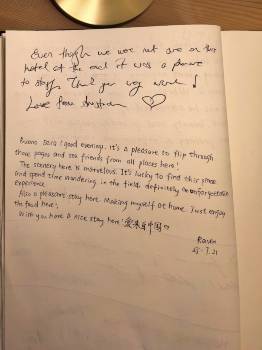 Even though we were not are on this
hotel at the end it was a pleasure
to stay. Thank you very much!
Love from
Buona sera! good evening. It's a pleasure to flip through
those pages and see friends from all places here!
The scenery here is marvelous. It's lucky to find this place
and spend time wandering in the field. definitely an unforgettable
experience
Also a pleasure stay here. Making myself at home. Just enjoy
the food here!
Wish you have a nice stay here! 爱来自中国